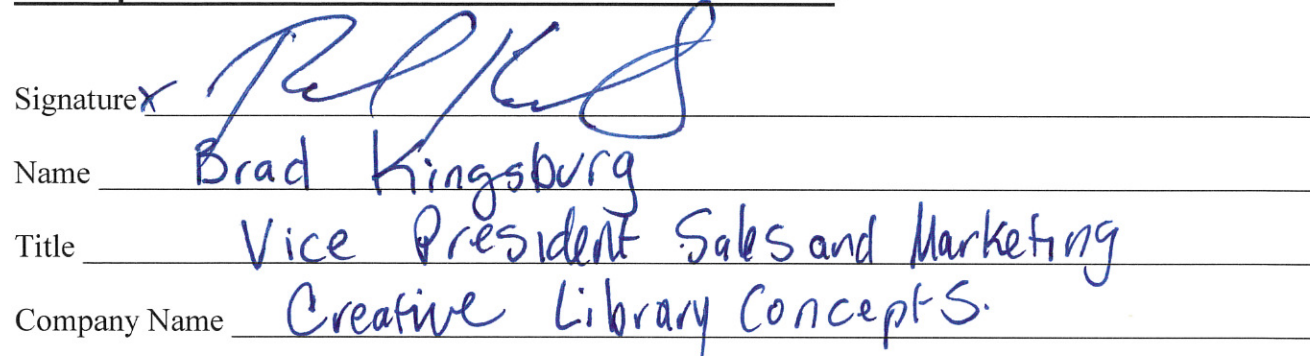 Signature X
Name Brad Kingsburg
Title Vice President Sales and Marketing
Company Name Creative Library Concepts.